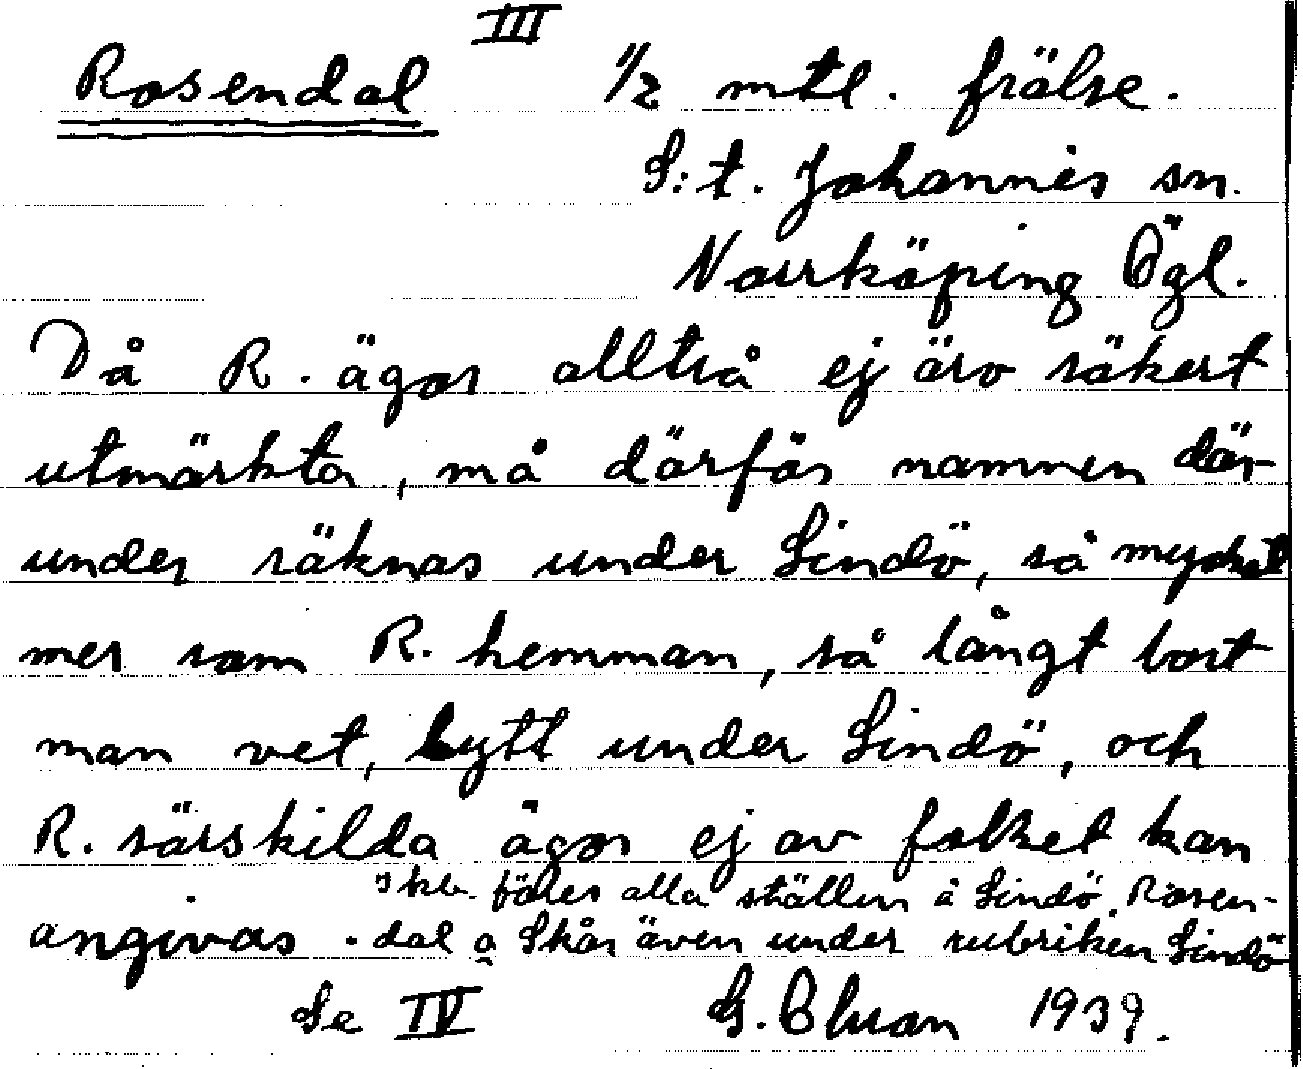 III
Rosendal 1/2 mtl. frälse.
S:t. Johannes sn.
Norrköping Ögl.
Då R. ägor alltså ej äro säkert
utmärkta, må därför namnen där-
under räknas under Lindö, så mycket
mer som R. hemman, så långt bort
man vet, lytt under Lindö, och
R. särskilda ägor ej av folket kan
föres alla ställen å Lindö, Rosen-
angivas. dal o Skår även under rubriken Lindö
Se IV G. 1939.